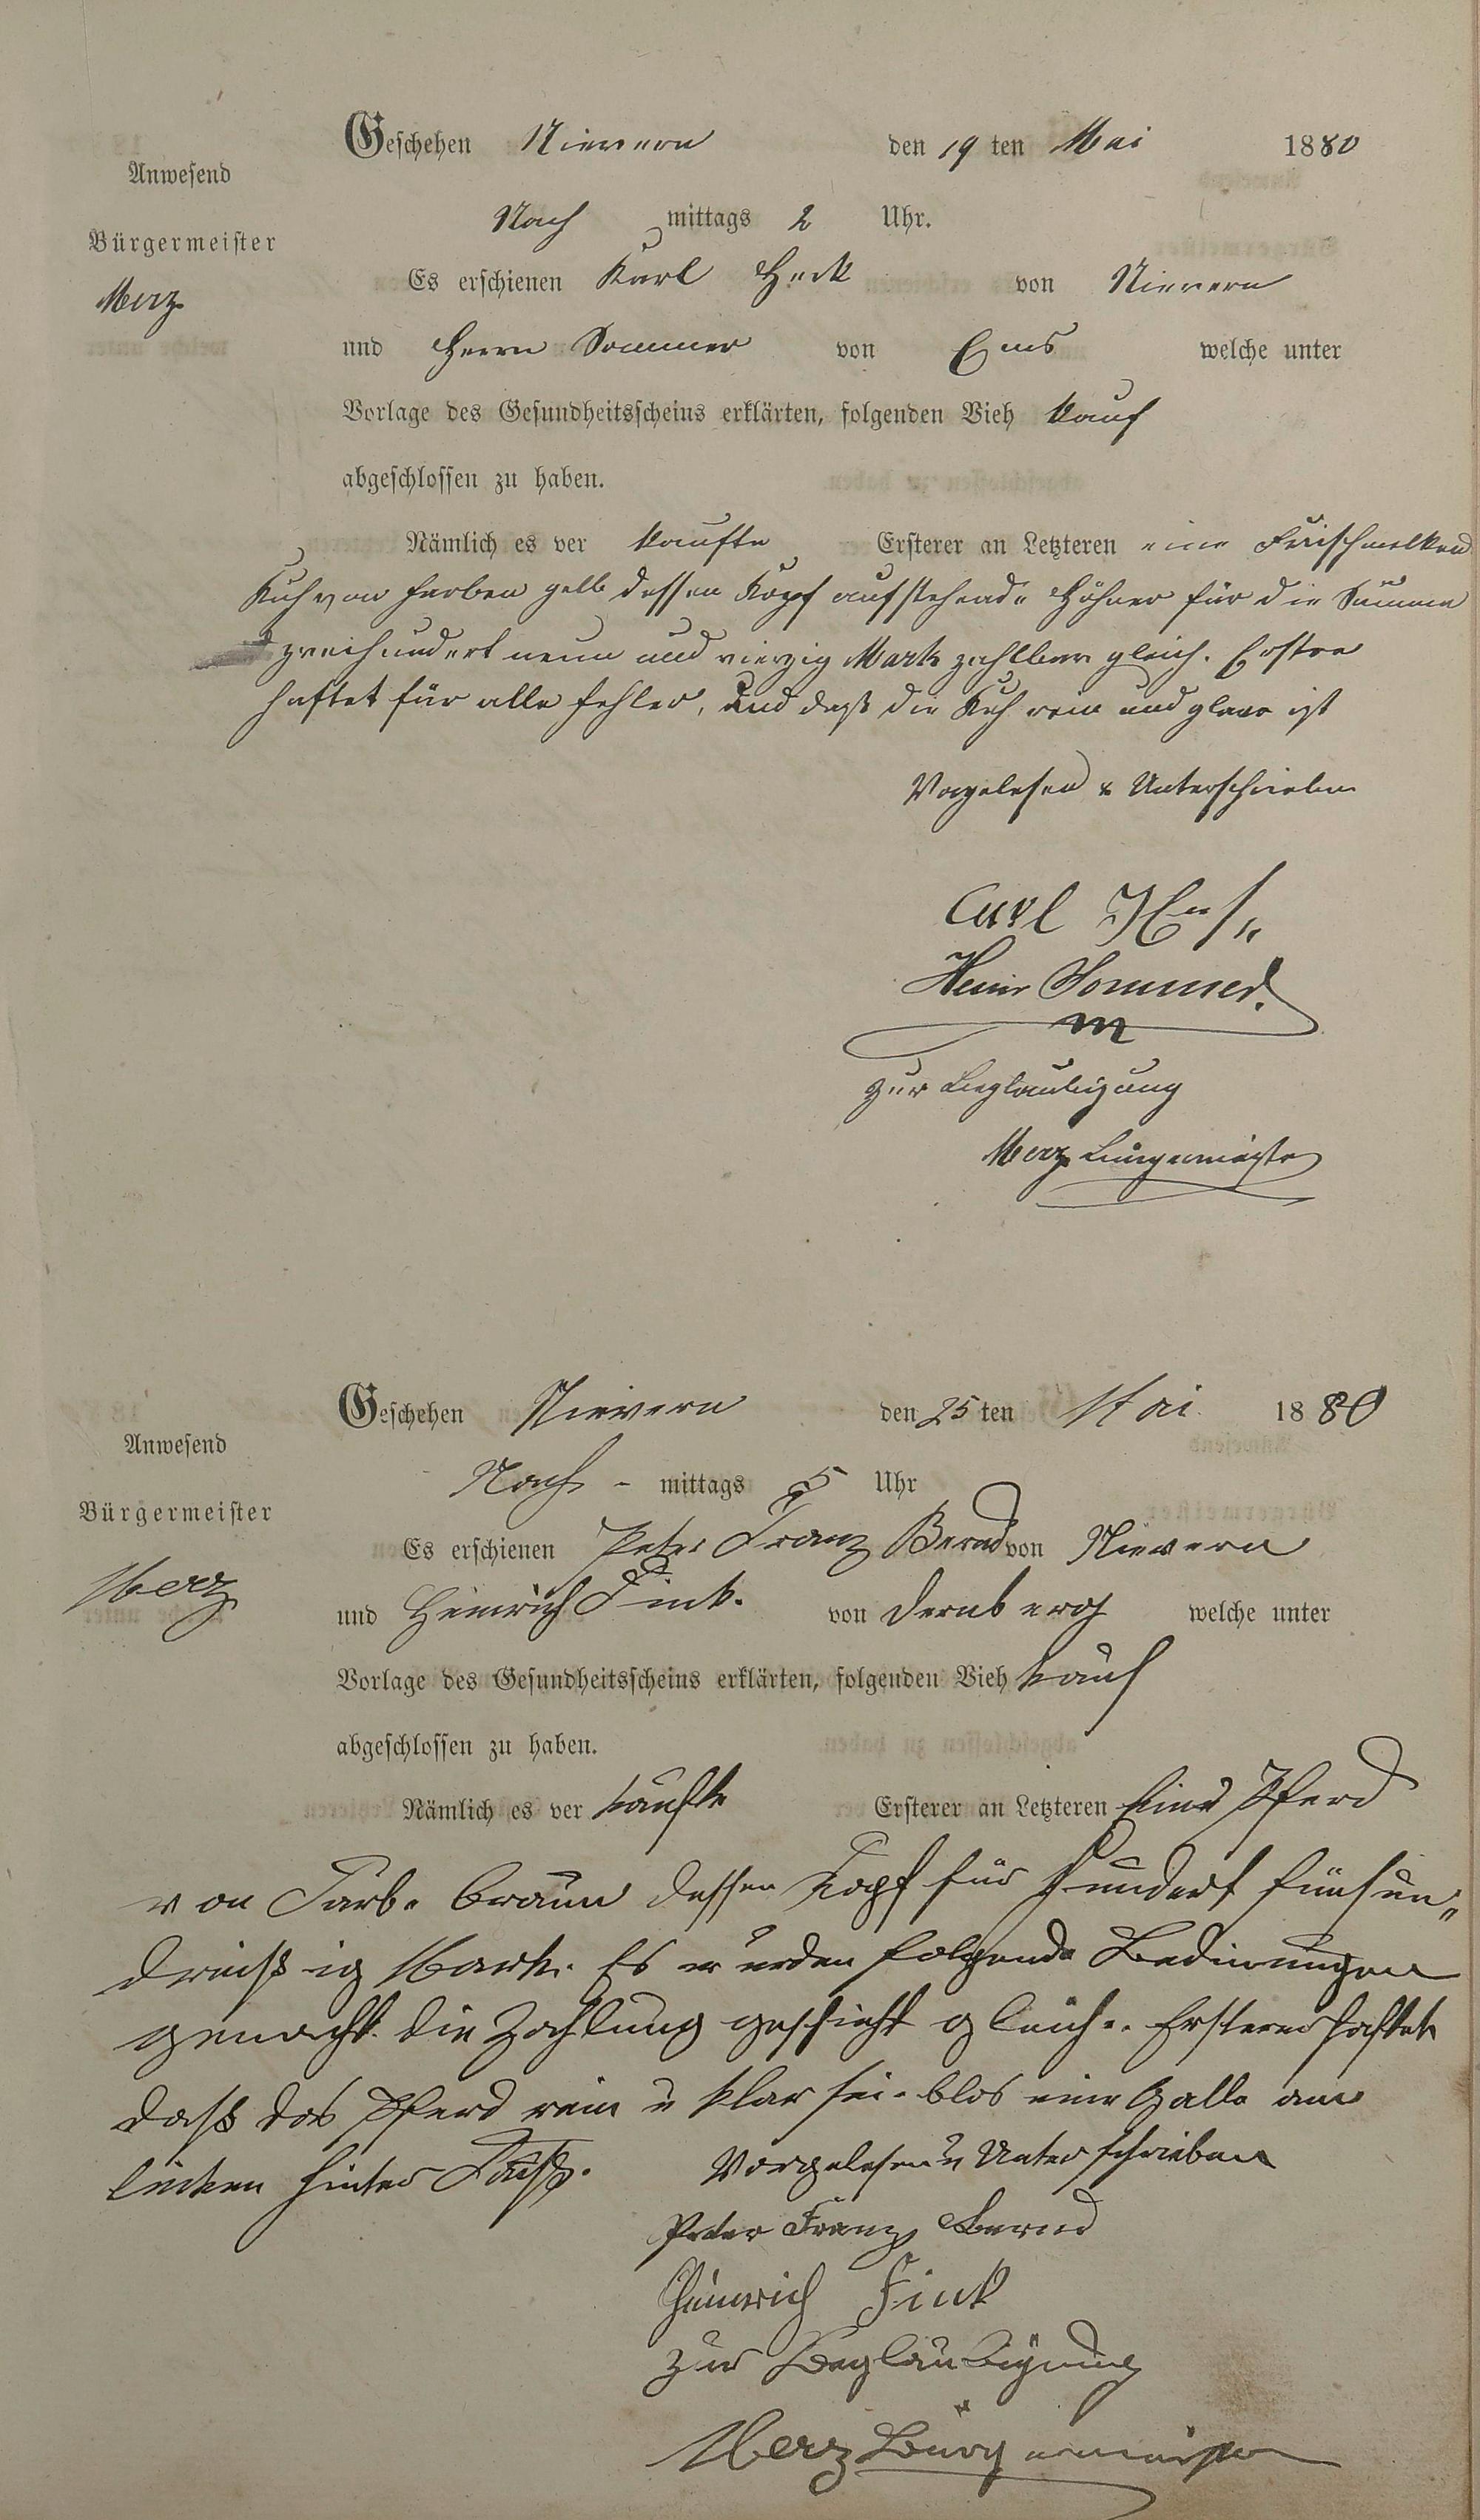 Geschehen Nievern den 19 ten Mai 1880
Anwesend
Nach mittags 2 Uhr.
Bürgermeister
Merz
Es erschienen Karl von Nievern
und Herrn Sommer von Ems welche unter
Vorlage des Gesundheitsscheins erklärten, folgenden Vieh kauf
abgeschlossen zu haben.
Nämlich es ver kaufte Ersterer an Letzteren eine Frischmelken
Kuh von Farben gelb dessen Kopf aufstehende Höhner für die Summe
zweihundert neun und vierzig Mark zahlbar gleich. Erstre
haftet für alle Fehler, und daß die Kuh rein und ist
Vorgelesen & Unterschrieben
Carl
Heinr Sommer.
zur Beglaubigung
Merz Bürgermeister
Geschehen Nievern den 25 ten Mai 1880
Anwesend
Nach - mittags 5 Uhr
Bürgermeister
Merz
Es erschienen Peter Franz Bernd von Nievern
und Heinrich Fink. von Dernberg welche unter
Vorlage des Gesundheitsscheins erklärten, folgenden Vieh kauf
abgeschlossen zu haben.
Nämlich es ver kaufte Ersterer an Letzteren Eine Pferd
von Farbe braun dessen Kopf für hundert fünfun„
dreißig Mark. Es wurden folgende Bedinungen
gemacht. die Zahlung geschieht gleich. Ersterer haftet
daß das Pferd rein u klar sei. blos eine Galle am
linken hinter Fuß. Vorgelesen u Unterschrieben
Peter Franz Bernd
Heinrich Fink
Zur Beglaubigung
Merz Bürgermeister